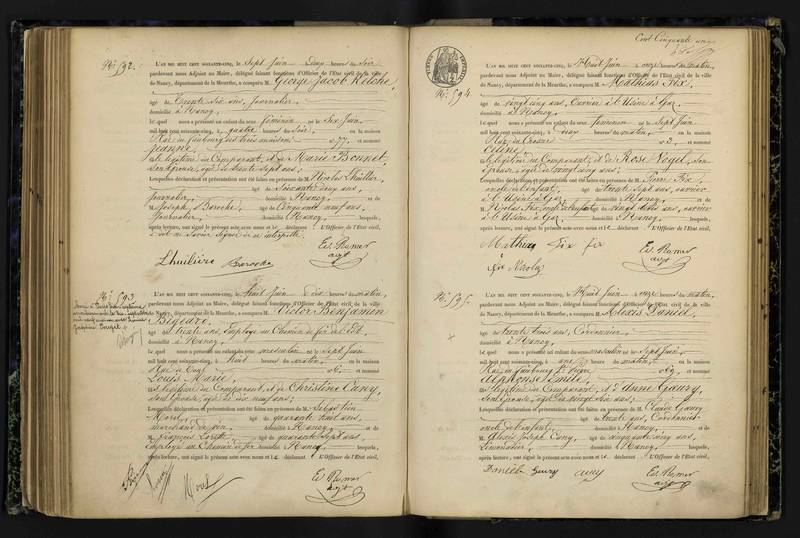 No. 592.
L'AN MIL HUIT CENT SOIXANTE-CINQ, le Sept Juin à deux heures du soir
pardevant nous Adjoint au Maire, délégué faisant fonctions d'Officier de l'État civil de la ville
de Nancy, département de la Meurthe, a comparu M. George Jacob
âgé de Trente six ans, journalier,
domicilié à Nancy,
lequel nous a présenté un enfant du sexe féminin né le Six Juin
mil huit cent soixante-cinq, à quatre heures du soir, en la maison
Rue du faubourg des trois maisons no 77, et nommé
Jeanne,
Comparant, et de Marie Bonnet,
son épouse, âgée de trente sept ans;
Lesquelles déclaration et présentation ont été faites en présence de M. Nicolas Lhuillier,
âgé de Soixante deux ans,
journalier, domicilié à Nancy, et de
M. Joseph Baroche, âgé de Cinquante neuf ans,
journalier, domicilié à Nancy, lesquels,
après lecture, ont signé le présent acte avec nous et le déclarant L'Officier de l'État civil,
a dit ne savoir signer de ce interpellé.
Lhuilière Baroche
No. 593.
L'AN MIL HUIT CENT SOIXANTE-CINQ, le huit Juin à dix heures du matin,
pardevant nous Adjoint au Maire, délégué faisant fonctions d'Officier de l'État civil de la ville
de Nancy, département de la Meurthe, a comparu M. Victor Benjamin
âgé de trente ans, Employé au Chemin de fer de l'Est,
domicilié à Nancy,
lequel nous a présenté un enfant du sexe masculin né le Sept Juin
mil huit cent soixante-cinq, à huit heures du matin, en la maison
no 6, et nommé
Louis Marie,
fils légitime du Comparant, et de Christine
son épouse, âgée de dix neuf ans;
Lesquelles déclaration et présentation ont été faites en présence de M. Sébastien
âgé de quarante huit ans,
marchand de domicilié à Nancy, et de
M. François âgé de quarante sept ans,
Employé au Chemin de fer domicilié à Nancy, lesquels,
après lecture, ont signé le présent acte avec nous et le déclarant L'Officier de l'État civil,
Cent Cinquante onze
No. 594.
L'AN MIL HUIT CENT SOIXANTE-CINQ, le Huit Juin à onze heures du matin,
pardevant nous Adjoint au Maire, délégué faisant fonctions d'Officier de l'État civil de la ville
de Nancy, département de la Meurthe, a comparu M. Mathias Fix,
âgé de vingt cinq ans, Ouvrier à l'Usine à Gaz,
domicilié à Nancy,
lequel nous a présenté un enfant du sexe féminin né le Sept Juin
mil huit cent soixante-cinq, à deux heures du matin, en la maison
Rue no 3, et nommé
Céline,
légitime du Comparant, et de Rose Vogel, son
épouse, âgée de vingt cinq ans;
Lesquelles déclaration et présentation ont été faites en présence de M. Pierre Fix,
oncle de l'enfant, âgé de trente sept ans, ouvrier
à l'Usine à Gaz, domicilié à Nancy, et de
M. Nicolas Fix, âgé de vingt ans, ouvrier
à l'Usine à Gaz, domicilié à Nancy, lesquels,
après lecture, ont signé le présent acte avec nous et le déclarant L'Officier de l'État civil,
Mathias Fix fix
fix Nicolas
No. 595.
L'AN MIL HUIT CENT SOIXANTE-CINQ, le Huit Juin à onze heures du matin,
pardevant nous Adjoint au Maire, délégué faisant fonctions d'Officier de l'État civil de la ville
de Nancy, département de la Meurthe, a comparu M. Alexis Daniel,
âgé de trente trois ans, Cordonnier,
domicilié à Nancy,
lequel nous a présenté un enfant du sexe masculin né le Sept Juin,
mil huit cent soixante-cinq, à une heure du matin, en la maison
Rue du faubourg St. Pierre no 69, et nommé
Alphonse Emile,
fils légitime du Comparant, et d'Anne Gaury,
son épouse, âgée de vingt six ans;
Lesquelles déclaration et présentation ont été faites en présence de M. Claude Gaury
âgé de trente ans, Cordonnier
oncle de l'enfant domicilié à Nancy, et de
M. Alexis Joseph Cuny, âgé de cinquante cinq ans,
Limonadier, domicilié à Nancy, lesquels,
après lecture, ont signé le présent acte avec nous et le déclarant L'Officier de l'État civil,
Daniel Gaury Cuny